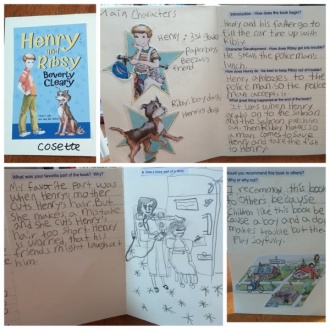 Henry
and
Ribsy
Beverly
Cleary
cosette
Main Characters
Henry: 3rd Grade
Paperboy
Beezus
friend
Ribsy: boy's dog
Henry's dog
Introduction - How does the book begin?
Henry and his father go to
fill the car tune up with
Ribsy.
Character Development - How does Ribsy get into trouble?
He steals the police man's
lunch.
Henry apologizes to the
police man so the police
man accepts it.
What great thing happened at the end of the story?
It was when Henry
grabs on to the salmon
and the salmon pull him
out. Then Ribsy barks so
a man comes to save
Henry and take the fish
to Henry.
What was your favorite part of the book? Why?
My favorite part was
when Henry's mother
cuts Henry's hair. But
She makes a mistake
and she cuts Henry's
hair too short. Henry
is worried, that his
friends might laugh at
him.
Would you recommend this book to others?
Why or why not?
I recommend this book
to others because
Children like this book be
cause a boy and a dog
makes trouble but they
Play Joyfully.